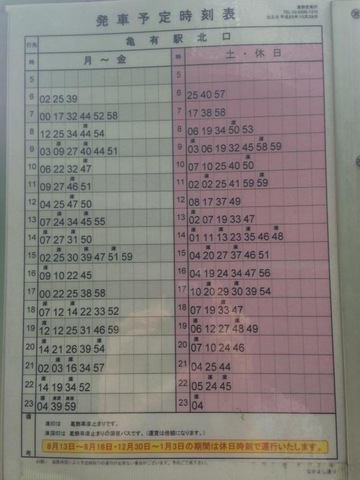 発車予定時刻表
行先 亀有駅北口
時刻 月～金 時刻 土・休日
5 5
6 02 25 39 6 25 40 57
7 00 17 32 44 52 58 7 17 38 58
8 12 25 34 44 54 8 06 19 34 50 53
9 03 09 27 40 44 51 9 03 06 19 32 45 58 59
10 06 22 32 47 10 07 10 25 40 50
11 09 27 46 51 11 02 02 25 41 59 59
12 04 25 47 50 12 08 17 37 49
13 07 24 34 45 55 13 02 07 19 33 47
14 07 27 31 50 14 01 11 13 23 35 46 48
15 02 25 30 39 47 51 59 15 04 20 27 36 47 51
16 09 10 22 45 16 04 19 24 34 47 56
17 00 22 25 38 58 17 10 20 29 30 39 54
18 07 12 14 22 33 52 18 07 19 33 47
19 12 12 25 31 46 59 19 06 12 27 48 49
20 14 21 26 39 54 20 07 10 24 46
21 02 03 16 34 57 21 04 20 44
22 14 19 34 52 22 05 24 45
23 04 39 59 23 04
備考
8月13日～8月16日・12月30日～1月3日の期間は休日時刻で運行いたします。